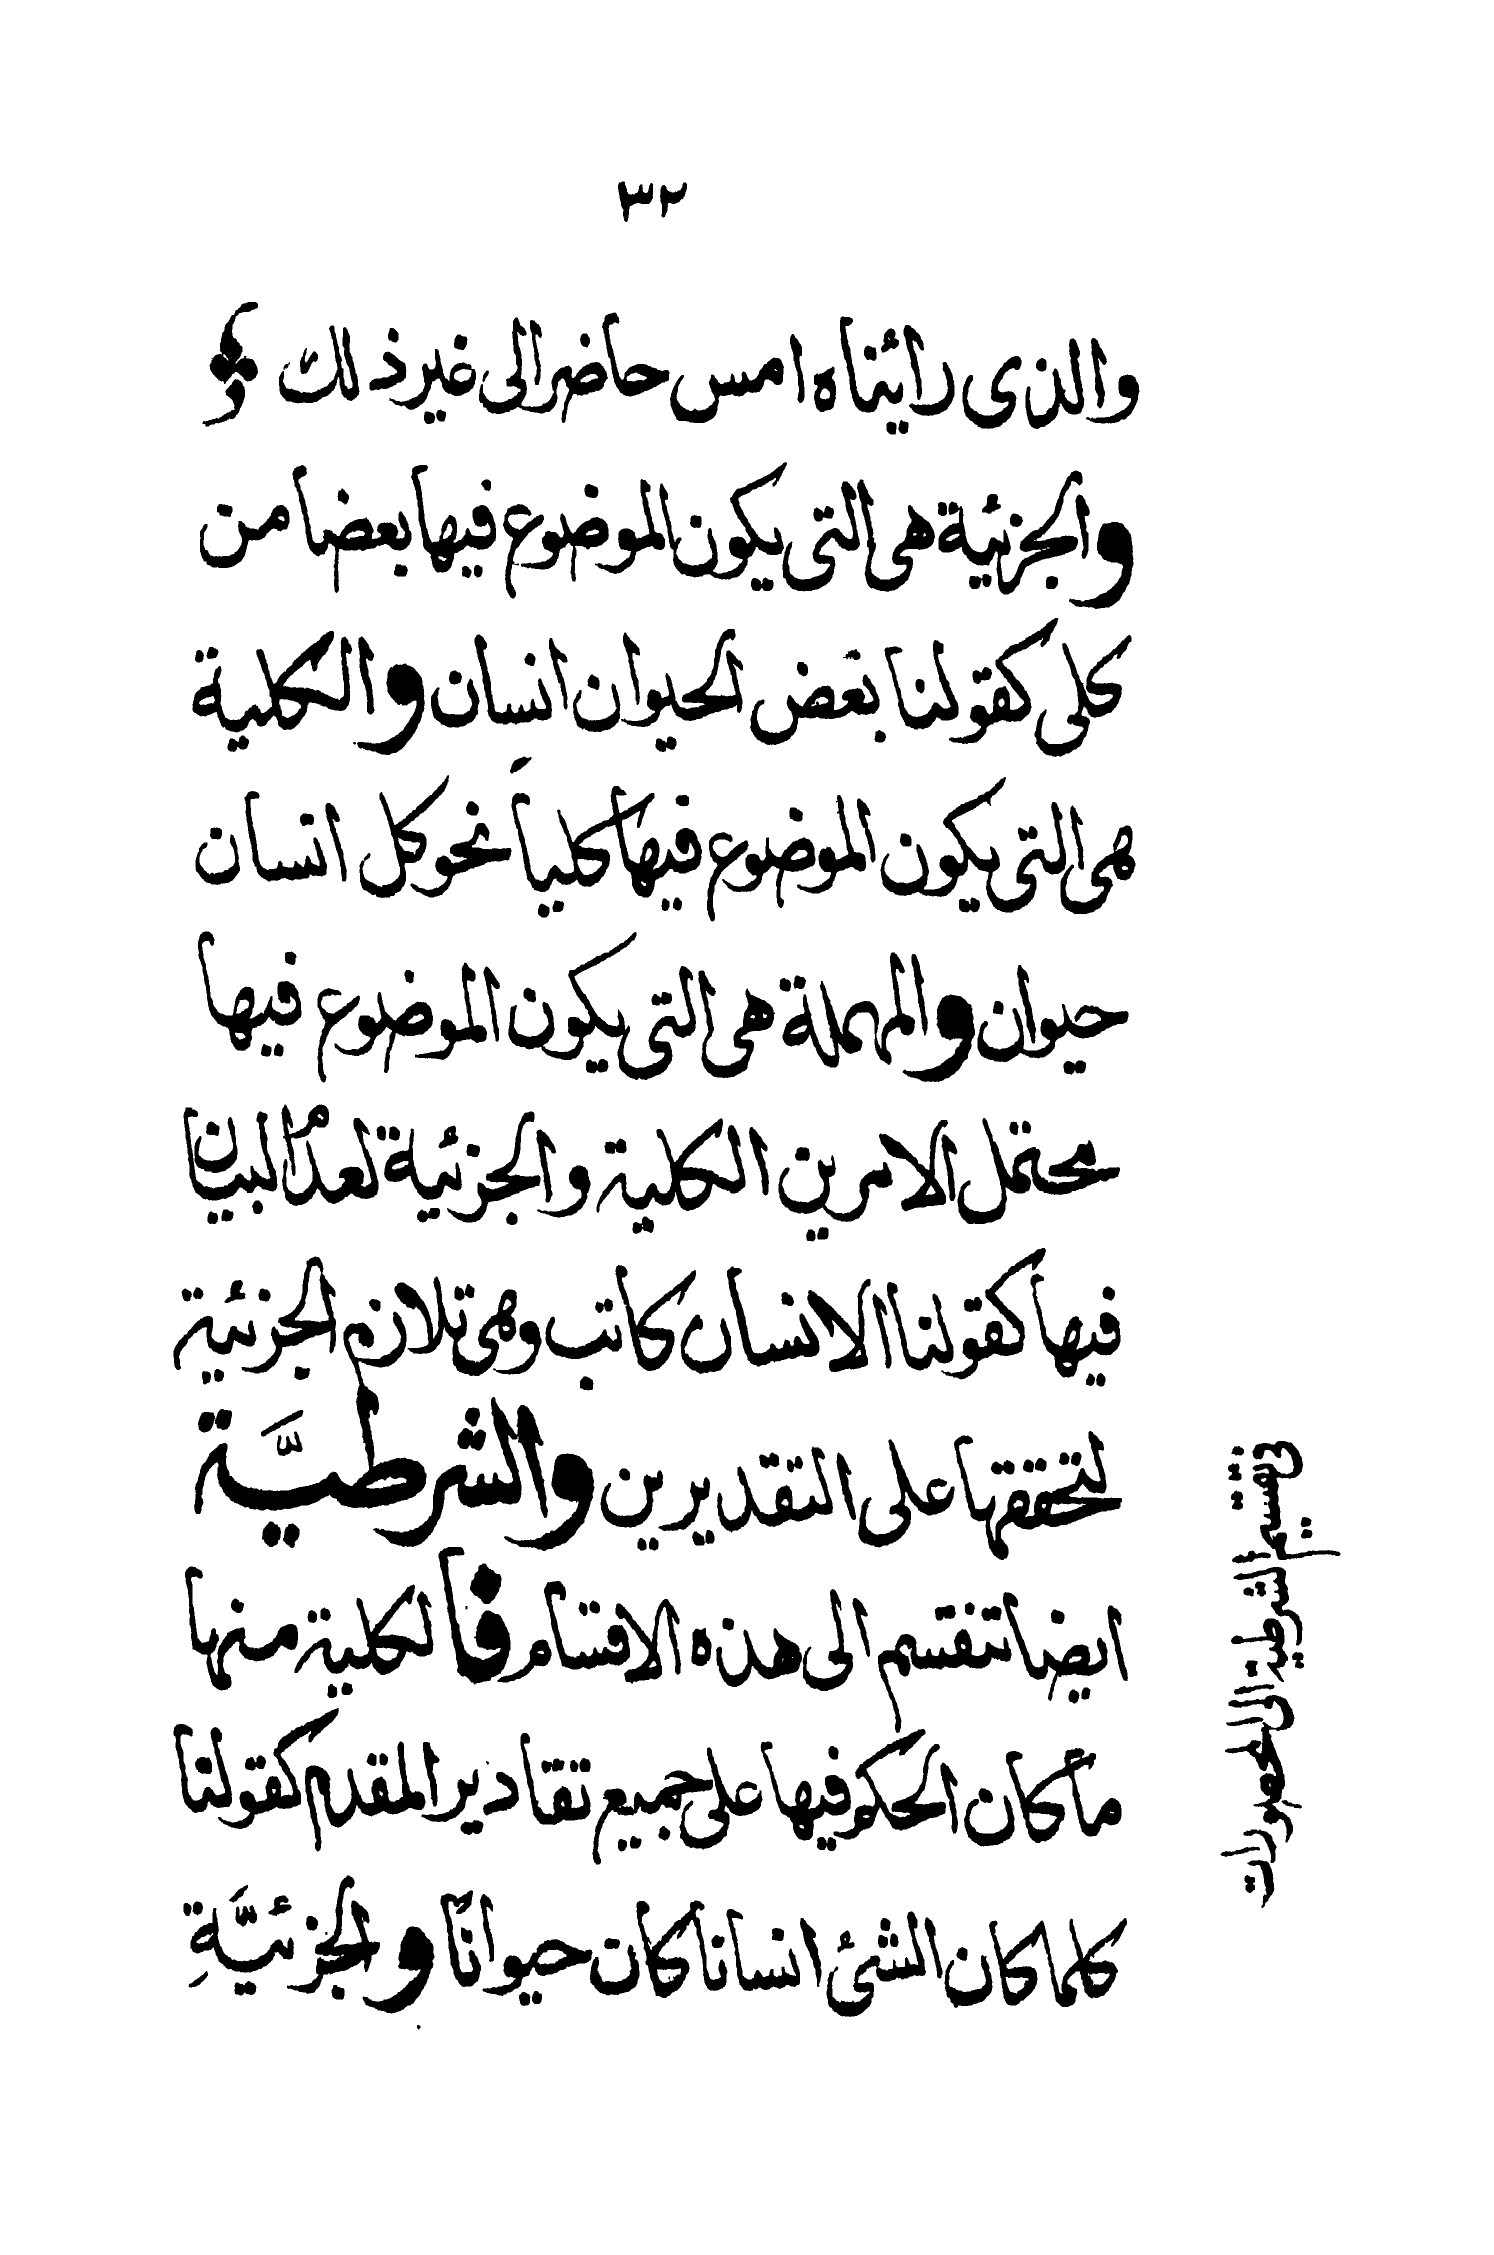 ٣٢
والذى رائناه امس حاضر الى غير ذلك
والجزئية هى التى يكون الموضوع فيها بعضا من
كلى كقولنا بعض الحيوان انسان والكلية
هى التى يكون الموضوع فيها كلياً نحو كل انسان
حيوان والمهملة هى التى يكون الموضوع فيها
محتمل الامرين الكلية والجزئية لعدم البيان
فيها كقولنا الانسان كاتب وهى تلازم الجزئية
لتحققها على التقديرين والشرطيَّة
ايضا تنقسم الى هذه الاقسام فالكلية منها
ما كان الحكم فيها على جميع تقادير المقدم كقولنا
كلما كان الشئ انسانا كان حيوانًا والجزئيَّةِ
فى تقسيم الشرطية الى المحصورات